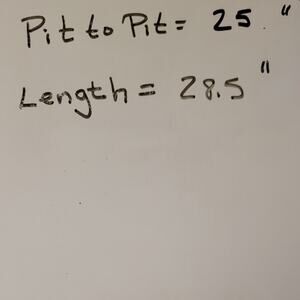 Pit to Pit = 25 "
Length = 28.5 "